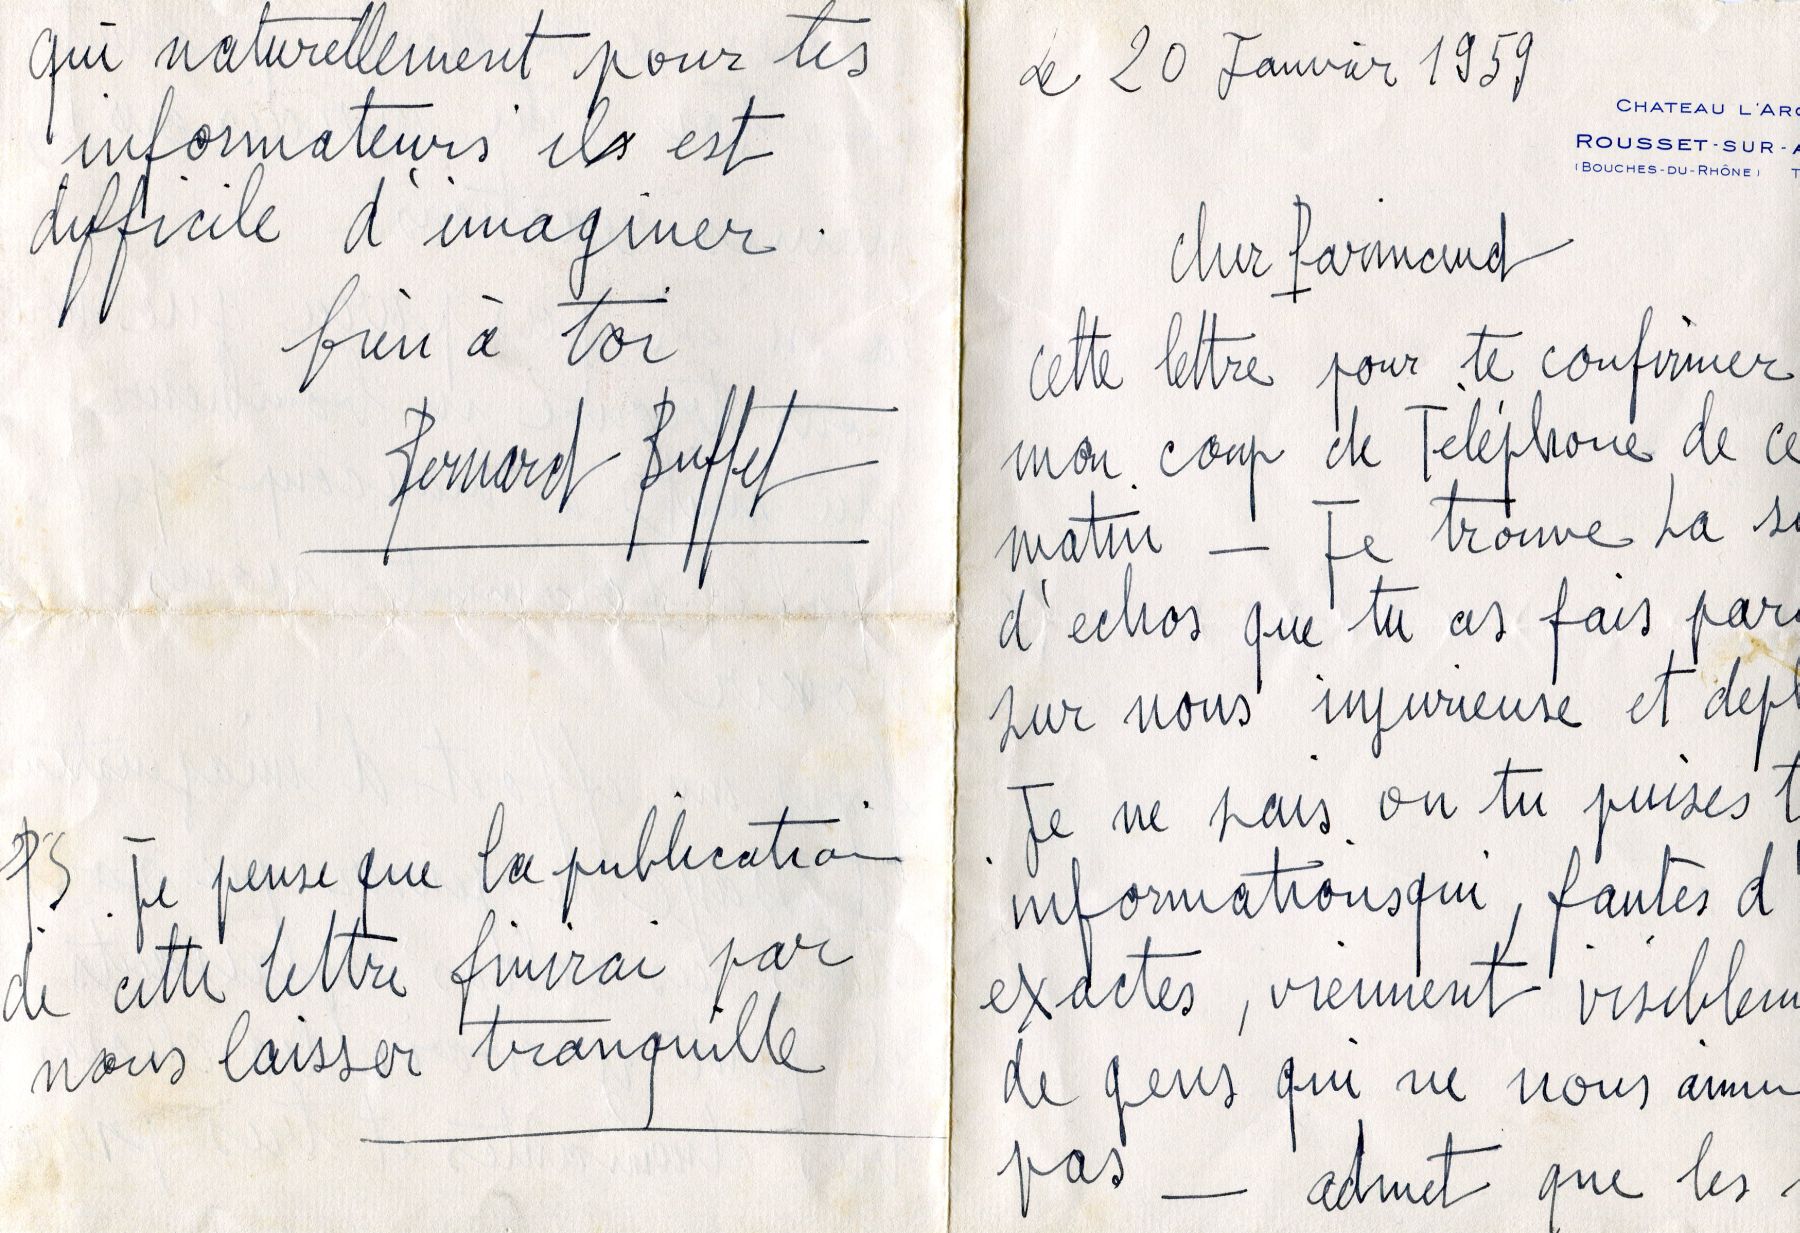 qui naturellement pour tes
informateurs ils est
difficile d'imaginer.
bien à toi
Bernard Buffet
PS. Je pense que la publication
de cette lettre finirai par
nous laisser tranquille
Le 20 Janvier 1959
CHATEAU L'ARC
ROUSSET-SUR-A
(BOUCHES-DU-RHÔNE) T
cher Parinaud
cette lettre pour te confirmer
mon coup de Téléphone de ce
matin — Je trouve la
d'echos que tu as fais
sur nous injurieuse et
Je ne sais ou tu puises
informations qui, fautes d'
exactes, viennent
de gens qui ne nous
pas — admet que les